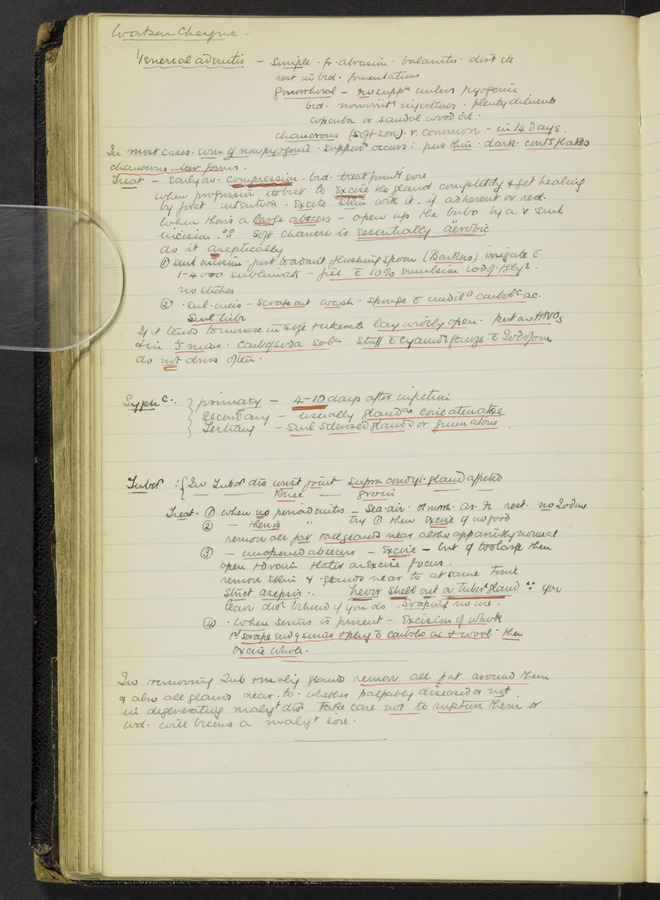 Watson Cheyne -
Venereal adenitis - Simple - fr. abrasion - balanitis - dist ch
rest in bed. fomentations
gonorrhoeal - no suppn unless pyogenic
bed. non irrit injections. plenty diluents
copaiba or sandal wood oil.
chancrous (soft sore) v. common - in 14 days.
In most cases even if nonpyogenic suppurn occurs: pus thin. dark. conts flakes
chancrous ulcer forms.
Treat - Early av. compression. bed. treat sore
when progressive is best to excise the gland completely & get healing
by first intention. Excise skin with it. if adherent or red.
When there's a large abscess - open up the bubo by a v small
incision. Soft chancre is essentially aerobic
do it aseptically
① Small incision just to admit flushing spoon (Barkers) irrigate c
1-4000 sublimate - fill c 10% emulsion iodof. glyc.
no stitches
② Sml incis - scrape out wash - sponge c undild carbolc ac.
Small tube
If it tends to increase in size & ulcerate lay widely open. HNO3
5 mins. Carb of soda soln. Stuff c cyanide gauze & Iodoform
do not dress often.
Syphc: primary - 4-10 days after infection
Secondary - Usually glands concatenatae
Tertiary - Small Sclerosed glands or gummatous.
Tuberr : In Tuberr dis wrist joint supra condyl: gland affected
Knee — groin
Treat. ① When no periadenitis - Sea-air. rest. no Iodine
② - there is " try ① then excise if no good
remove all fat & all glands near altho apparently normal
③ - unopened abscess - Excise - but if too large then
open & drain & later on excise focus.
remove skin & glands near to at same time
Strict asepsis. Never shell out a tuberr gland ∵ you
leave disd behind if you do. Scraping no use.
④. When sinus is present - Excision of whole
1st scrape out sinus & plug c carbolic ac & wool - then
Excise whole.
In removing Tub & malig glands remove all fat around them
& also all glands near to. whether palpably diseased or not.
in degenerating maligt dis. Take care not to rupture them or
wd. will become a maligt sore.